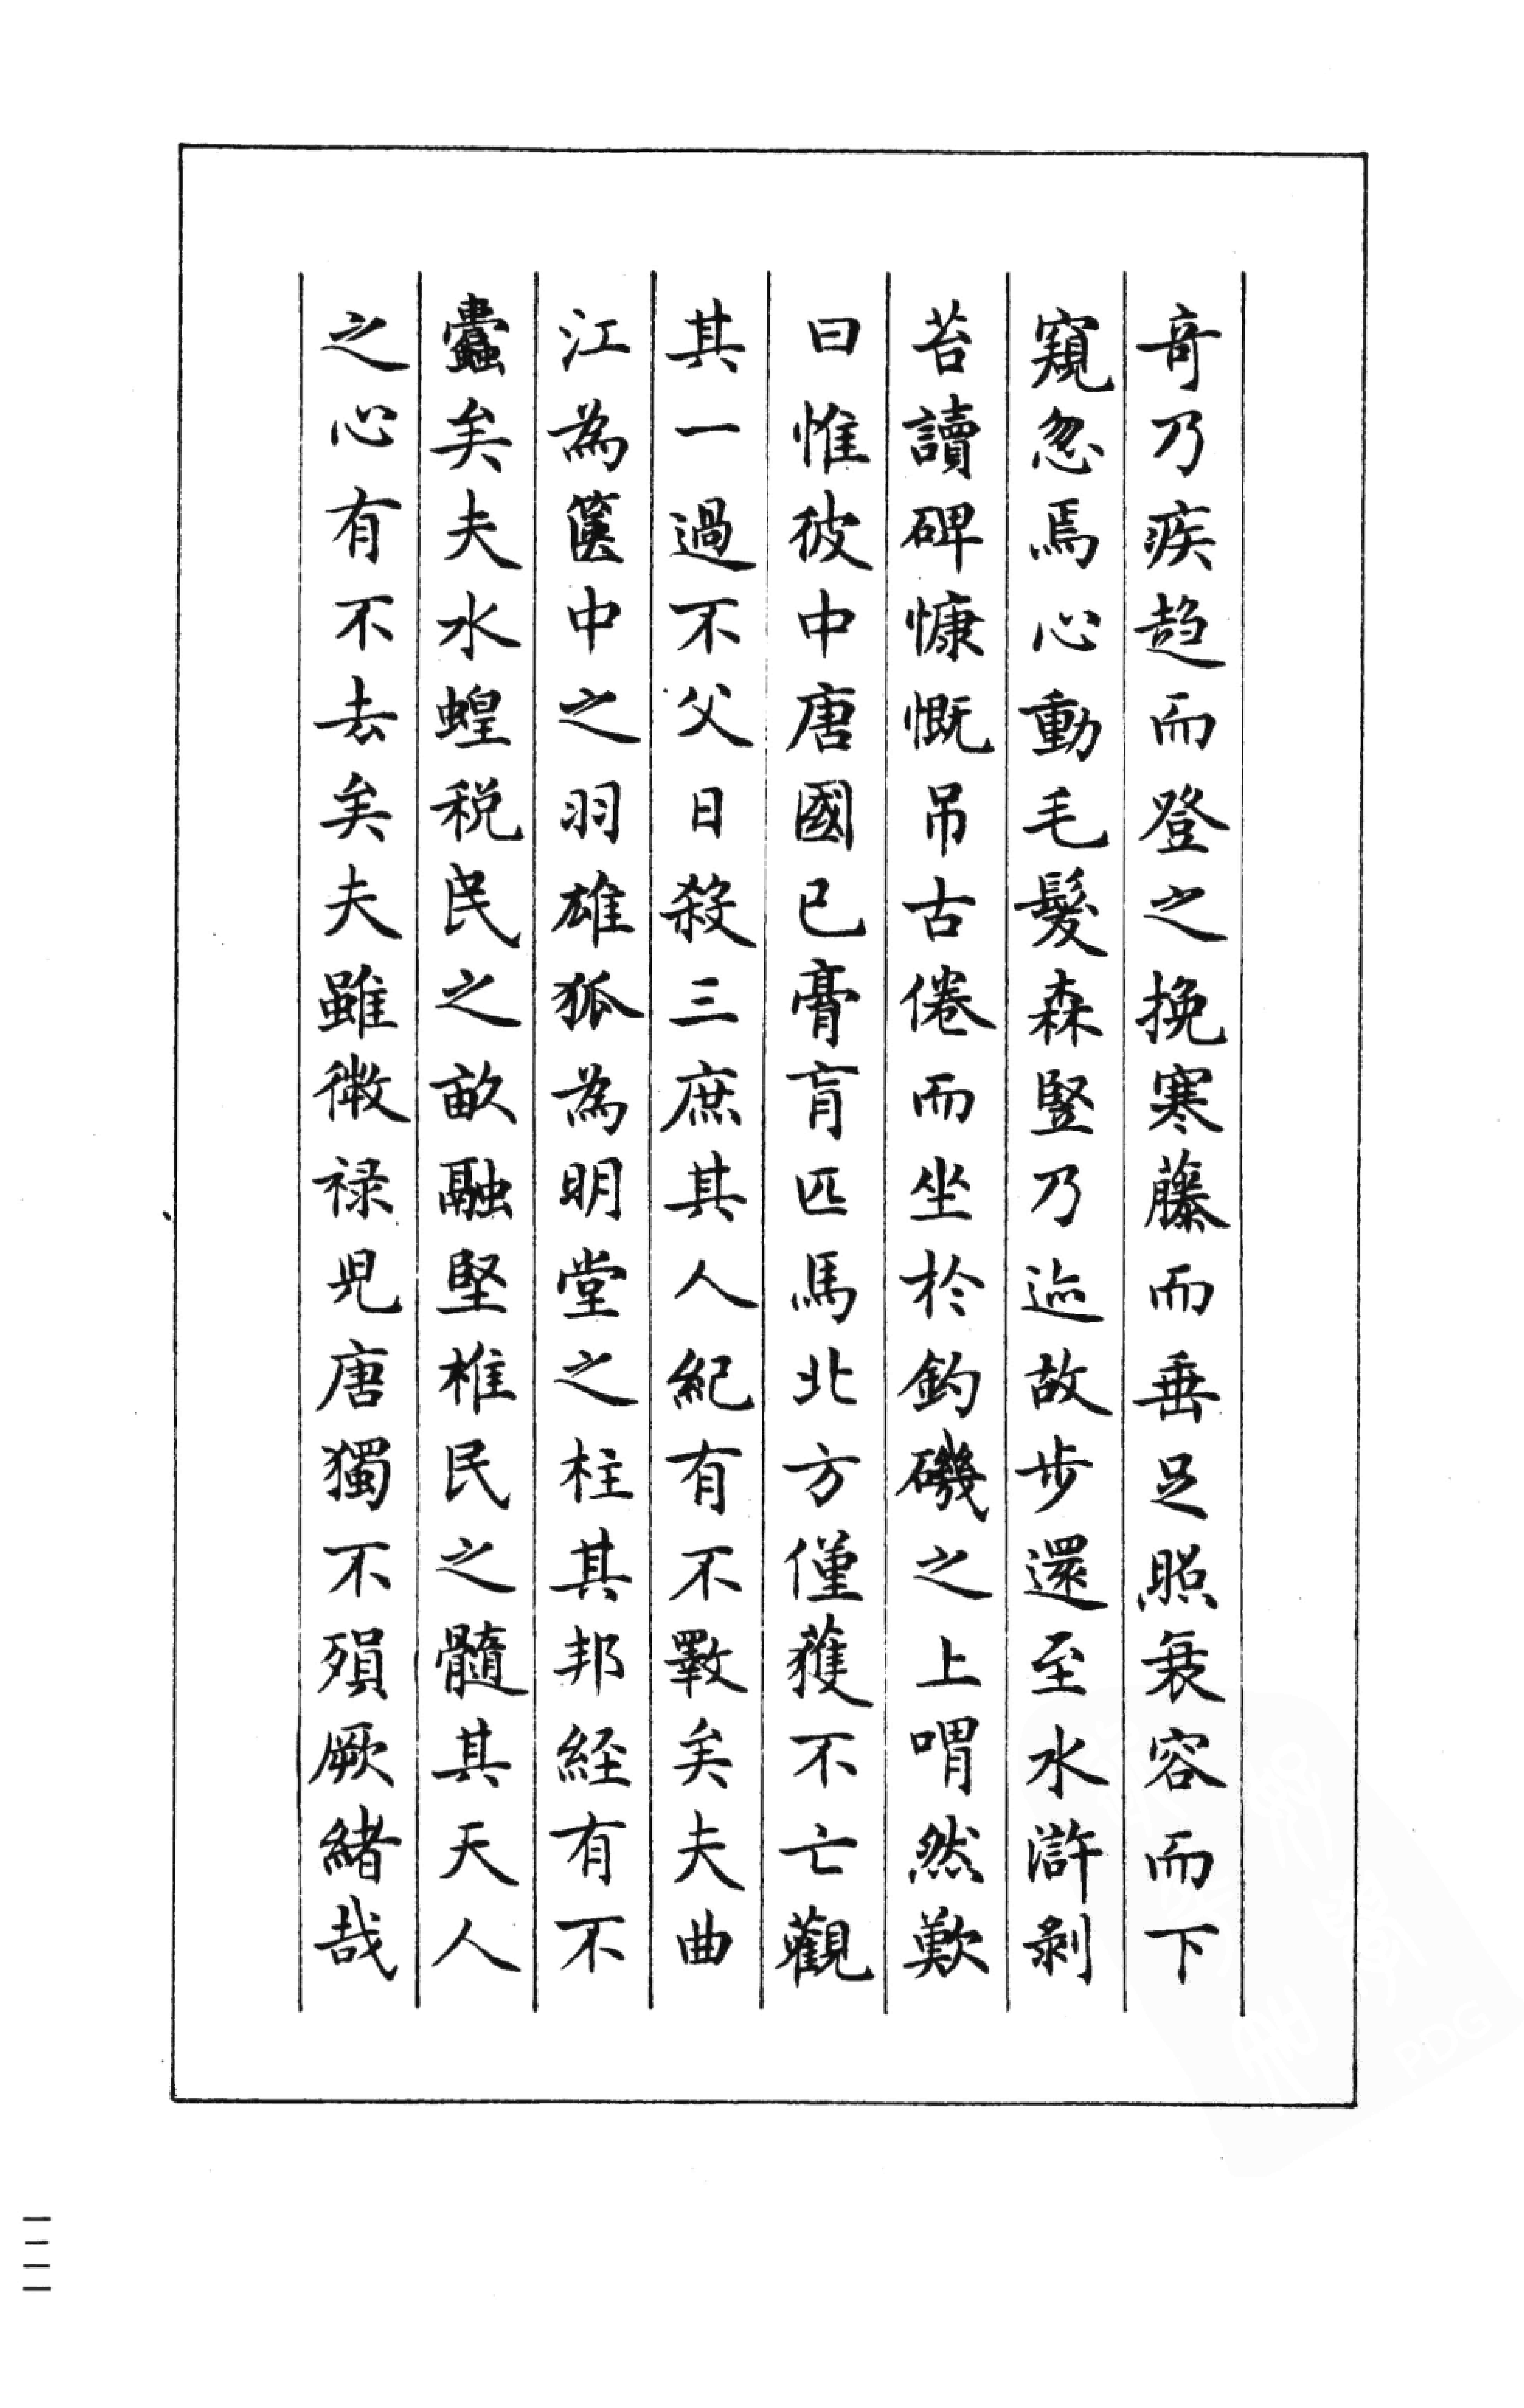 竒乃疾趋而登之挽寒藤而垂足照衰容而下
窺忽焉心動毛髮森竪乃迩故步還至水滸剥
苔讀碑慷慨吊古倦而坐於釣磯之上喟然歎
曰惟彼中唐國已膏肓匹馬北方僅獲不亡觀
其一過不父日殺三庶其人紀有不斁矣夫曲
江為篋中之羽雄狐為明堂之柱其邦経有不
蠹矣夫水蝗税民之畝融堅椎民之髓其天人
之心有不去矣夫雖微禄児唐獨不殞厥緒哉
一二一